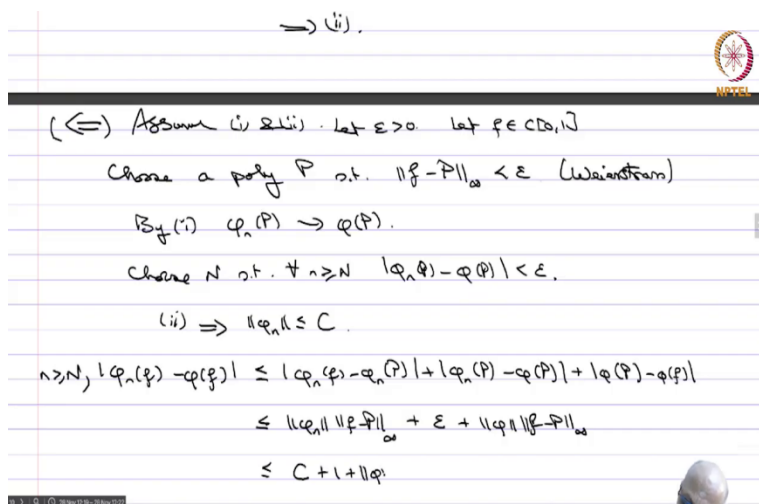 ⟹ (ii).
NPTEL
(⟸) Assume (i) & (ii). Let ε>0. Let f ∈ C[0,1]
Choose a poly P s.t. ‖f-P‖∞ < ε (Weierstrass)
By (i) φₙ(P) → φ(P).
Choose N s.t. ∀ n≥N |φₙ(P) - φ(P)| < ε.
(ii) ⟹ ‖φₙ‖ ≤ C.
n≥N, |φₙ(f) - φ(f)| ≤ |φₙ(f) - φₙ(P)| + |φₙ(P) - φ(P)| + |φ(P) - φ(f)|
≤ ‖φₙ‖ ‖f-P‖∞ + ε + ‖φ‖ ‖f-P‖∞
≤ C + 1 + ‖φ